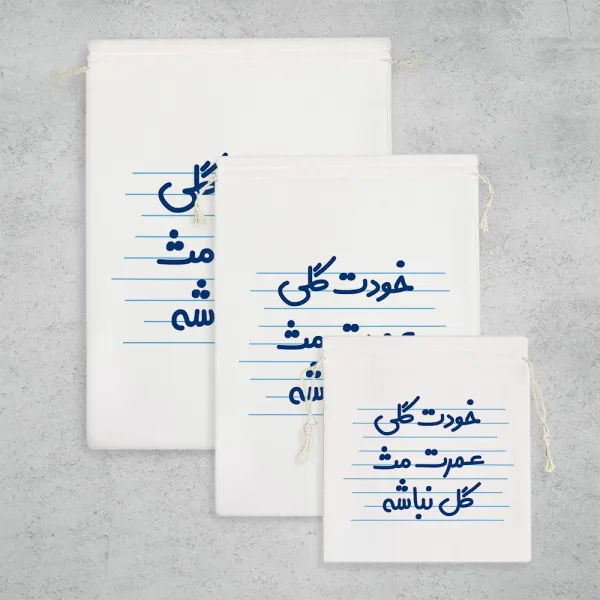 گلی
مث
خودت گلی
عمرت مث
خودت گلی
عمرت مث
گل نباشه